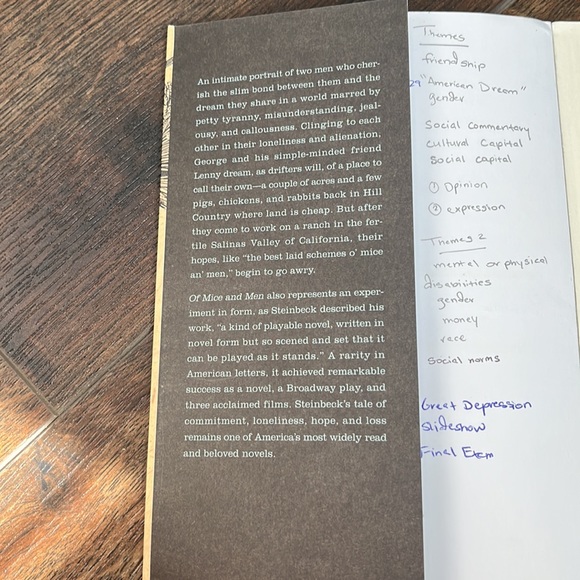 An intimate portrait of two men who cher-
ish the slim bond between them and the
dream they share in a world marred by
petty tyranny, misunderstanding, jeal-
ousy, and callousness. Clinging to each
other in their loneliness and alienation,
George and his simple-minded friend
Lenny dream, as drifters will, of a place to
call their own—a couple of acres and a few
pigs, chickens, and rabbits back in Hill
Country where land is cheap. But after
they come to work on a ranch in the fer-
tile Salinas Valley of California, their
hopes, like "the best laid schemes o' mice
an' men," begin to go awry.
Of Mice and Men also represents an exper-
iment in form, as Steinbeck described his
work, "a kind of playable novel, written in
novel form but so scened and set that it
can be played as it stands." A rarity in
American letters, it achieved remarkable
success as a novel, a Broadway play, and
three acclaimed films. Steinbeck's tale of
commitment, loneliness, hope, and loss
remains one of America's most widely read
and beloved novels.
Themes
friendship
29 "American Dream"
gender
Social commentary
cultural Capital
Social capital
① Opinion
② expression
Themes 2
mental or physical
disabilities
gender
money
race
Social norms
Great Depression
Slideshow
Final Exam